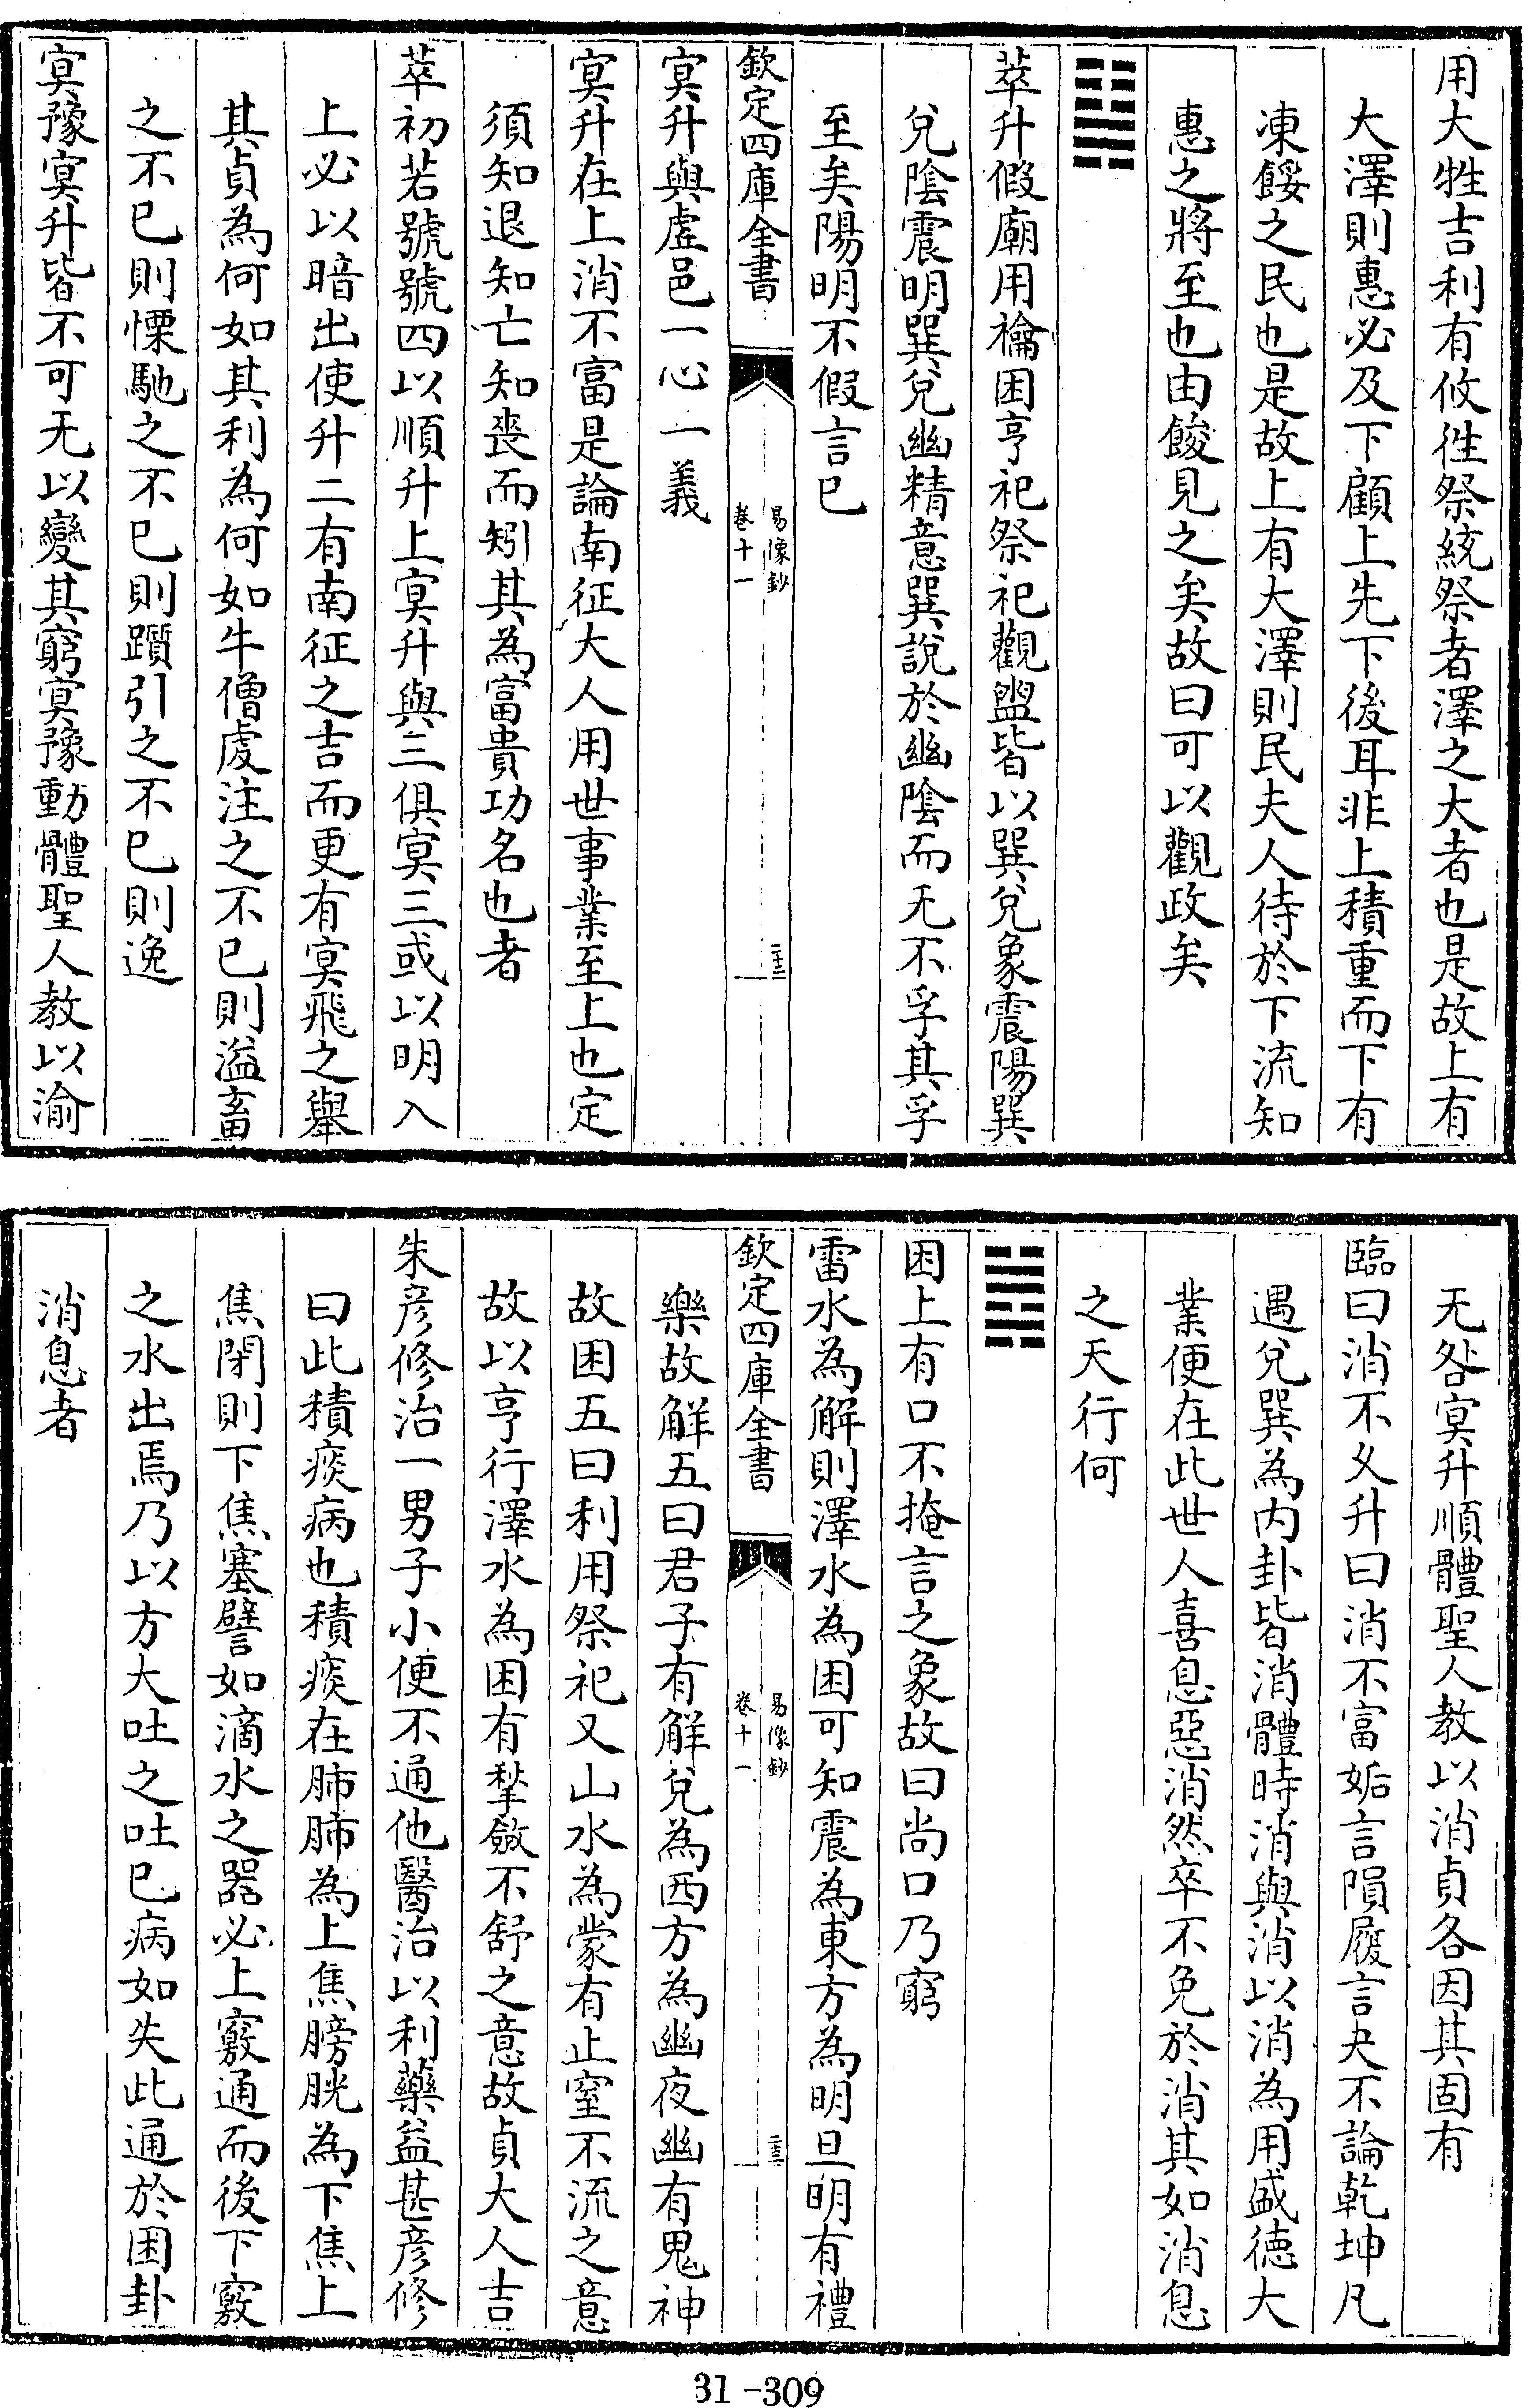 用大牲吉利有攸往祭統祭者澤之大者也是故上有
大澤則惠必及下顧上先下後耳非上積重而下有
凍餒之民也是故上有大澤則民夫人待於下流知
惠之將至也由餕見之矣故曰可以觀政矣
䷭
萃升假廟用禴困亨祀祭祀觀盥皆以巽兌象震陽巽
兌陰震明巽兌幽精意巽說於幽陰而无不孚其孚
至矣陽明不假言已
欽定四庫全書
易像鈔
卷十一
二十三
冥升與虛邑一心一義
冥升在上消不富是論南征大人用世事業至上也定
須知退知亡知喪而矧其為富貴功名也者
萃初若號號四以順升上冥升與三俱冥三或以明入
上必以暗出使升二有南征之吉而更有冥飛之舉
其貞為何如其利為何如牛僧虔注之不已則溢畜
之不已則慄馳之不已則躓引之不已則逸
冥豫冥升皆不可无以變其窮冥豫動體聖人教以渝
无咎冥升順體聖人教以消貞各因其固有
臨曰消不乆升曰消不富姤言隕履言夬不論乾坤凡
遇兌巽為内卦皆消體時消與消以消為用盛德大
業便在此世人喜息惡消然卒不免於消其如消息
之天行何
䷮
困上有口不掩言之象故曰尚口乃窮
雷水為解則澤水為困可知震為東方為明旦明有禮
欽定四庫全書
易像鈔
卷十一
二十三
樂故解五曰君子有解兌為西方為幽夜幽有鬼神
故困五曰利用祭祀又山水為蒙有止窒不流之意
故以亨行澤水為困有揫斂不舒之意故貞大人吉
朱彦修治一男子小便不通他醫治以利藥益甚彦修
曰此積痰病也積痰在肺肺為上焦膀胱為下焦上
焦閉則下焦塞譬如滴水之器必上竅通而後下竅
之水出焉乃以方大吐之吐已病如失此通於困卦
消息者
31-309